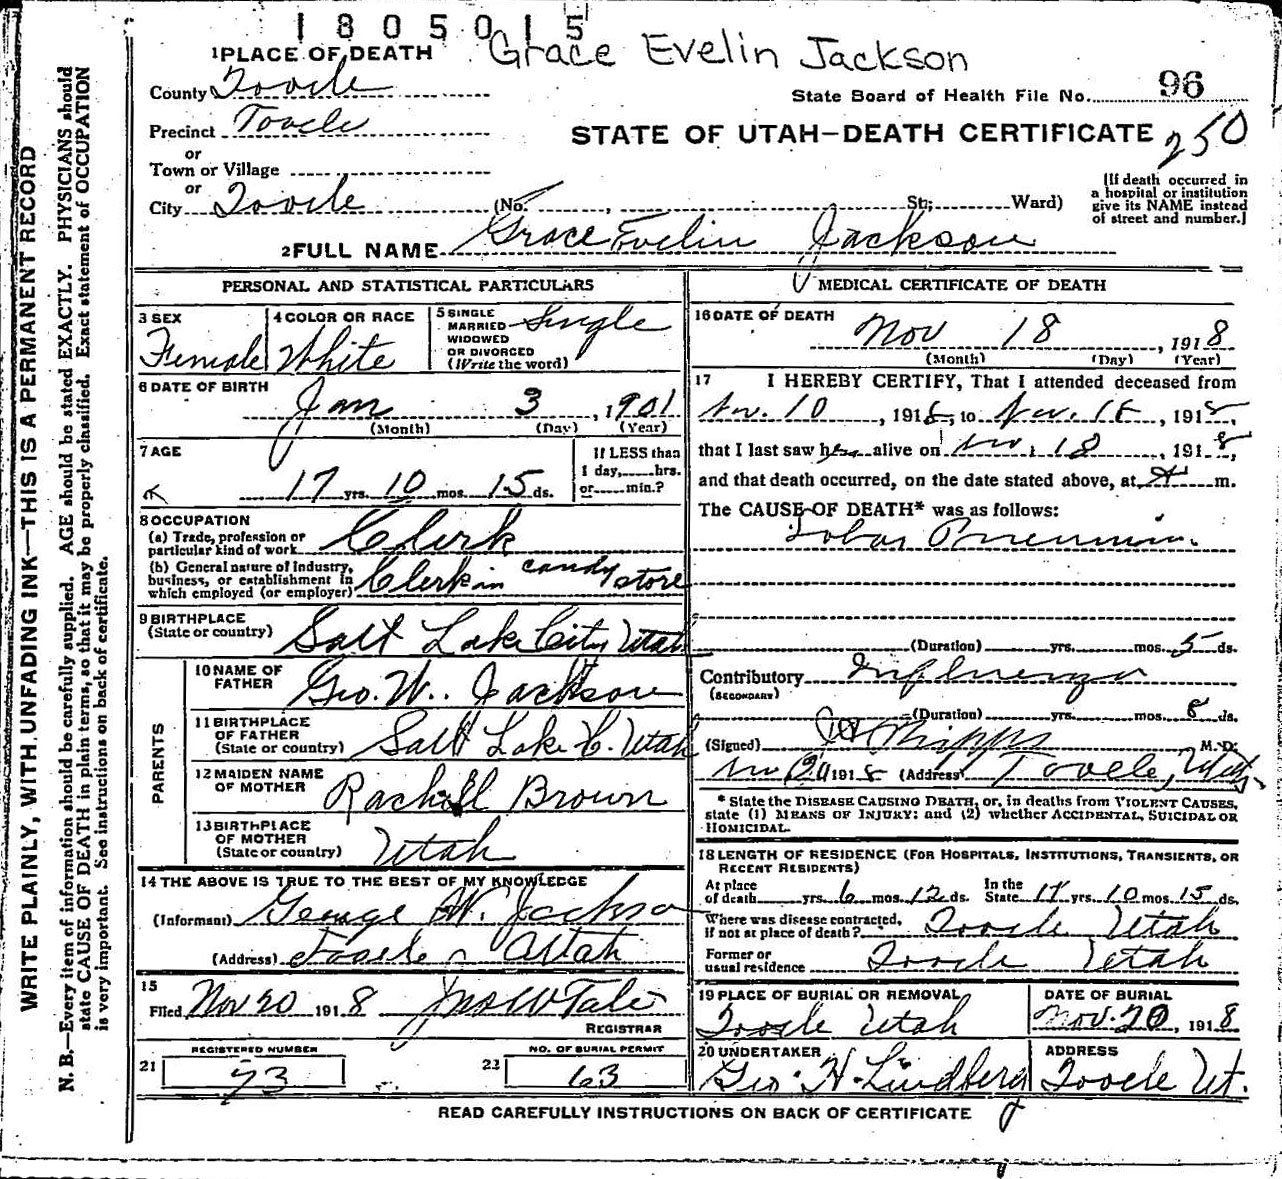 1805015
Grace Evelin Jackson
1 PLACE OF DEATH
County Tooele
State Board of Health File No. 96
Precinct Tooele
STATE OF UTAH—DEATH CERTIFICATE 250
or
Town or Village
or
City Tooele (No. , St; Ward)
[If death occurred in
a hospital or institution
give its NAME instead
of street and number.]
2 FULL NAME Grace Evelin Jackson
PERSONAL AND STATISTICAL PARTICULARS
3 SEX
Female
4 COLOR OR RACE
White
5 SINGLE
MARRIED
WIDOWED
OR DIVORCED
(Write the word)
Single
6 DATE OF BIRTH
Jan 3, 1901
(Month) (Day) (Year)
7 AGE
17 yrs. 10 mos. 15 ds.
If LESS than
1 day, hrs.
or min.?
8 OCCUPATION
(a) Trade, profession or
particular kind of work Clerk
(b) General nature of industry,
business, or establishment in
which employed (or employer) Clerk in candy store
9 BIRTHPLACE
(State or country) Salt Lake City Utah
PARENTS
10 NAME OF
FATHER Geo. W. Jackson
11 BIRTHPLACE
OF FATHER
(State or country) Salt Lake C. Utah
12 MAIDEN NAME
OF MOTHER Rachell Brown
13 BIRTHPLACE
OF MOTHER
(State or country) Utah
14 THE ABOVE IS TRUE TO THE BEST OF MY KNOWLEDGE
(Informant) George W. Jackso
(Address) Tooele Utah
15
Filed Nov 20 1918 Jno W Tate
REGISTRAR
21 REGISTERED NUMBER
73
22 NO. OF BURIAL PERMIT
63
MEDICAL CERTIFICATE OF DEATH
16 DATE OF DEATH
Nov 18, 1918
(Month) (Day) (Year)
17 I HEREBY CERTIFY, That I attended deceased from
Nov. 10, 1918, to Nov. 18, 1918,
that I last saw her alive on Nov. 18, 1918,
and that death occurred, on the date stated above, at m.
The CAUSE OF DEATH* was as follows:
Lobar Pneumonia.
(Duration) yrs. mos. 5 ds.
Contributory Influenza
(SECONDARY)
(Duration) yrs. mos. 8 ds.
(Signed) Phipps M. D.
Nov 1918 (Address) Tooele, Utah
* State the DISEASE CAUSING DEATH, or, in deaths from VIOLENT CAUSES,
state (1) MEANS OF INJURY; and (2) whether ACCIDENTAL, SUICIDAL OR
HOMICIDAL.
18 LENGTH OF RESIDENCE (FOR HOSPITALS, INSTITUTIONS, TRANSIENTS, OR
RECENT RESIDENTS)
At place
of death yrs. 6 mos. 12 ds. In the
State 17 yrs. 10 mos. 15 ds.
Where was disease contracted,
if not at place of death? Tooele Utah
Former or
usual residence Tooele Utah
19 PLACE OF BURIAL OR REMOVAL
Tooele Utah
DATE OF BURIAL
Nov. 20, 1918
20 UNDERTAKER
Geo. H. Lindberg
ADDRESS
Tooele Ut.
READ CAREFULLY INSTRUCTIONS ON BACK OF CERTIFICATE
WRITE PLAINLY, WITH UNFADING INK—THIS IS A PERMANENT RECORD
N. B.—Every item of information should be carefully supplied. AGE should be stated EXACTLY. PHYSICIANS should
state CAUSE OF DEATH in plain terms, so that it may be properly classified. Exact statement of OCCUPATION
is very important. See instructions on back of certificate.